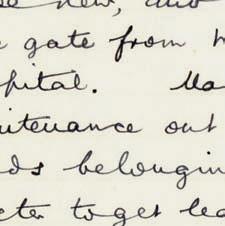 new, and
gate from
pital. Ma
itenance out
ds belongin
cter to get lea